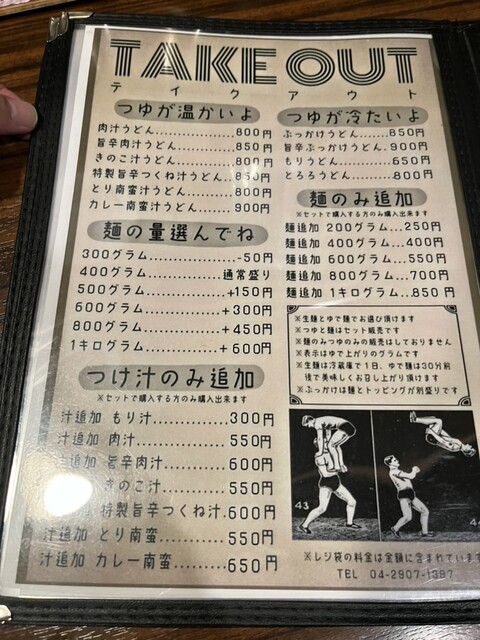 TAKE OUT
テイクアウト
つゆが温かいよ
肉汁うどん..............800円
旨辛肉汁うどん..........850円
きのこ汁うどん..........800円
特製旨辛つくね汁うどん..850円
とり南蛮汁うどん........800円
カレー南蛮汁うどん......900円
麺の量選んでね
300グラム..............-50円
400グラム..............通常盛り
500グラム............+150円
600グラム............+300円
800グラム............+450円
1キログラム..........+600円
つけ汁のみ追加
※セットで購入する方のみ購入出来ます
汁追加 もり汁............300円
汁追加 肉汁..............550円
汁追加 旨辛肉汁..........600円
きのこ汁..........550円
特製旨辛つくね汁.600円
汁追加 とり南蛮..........550円
汁追加 カレー南蛮........650円
つゆが冷たいよ
ぶっかけうどん......850円
旨辛ぶっかけうどん.900円
もりうどん..........650円
とろろうどん........800円
麺のみ追加
※セットで購入する方のみ購入出来ます
麺追加 200グラム...250円
麺追加 400グラム...400円
麺追加 600グラム...550円
麺追加 800グラム...700円
麺追加 1キログラム...850円
※生麺とゆで麺でお選び頂けます
※つゆと麺はセット販売です
※麺のみつゆのみの販売はしておりません
※表示はゆで上がりのグラムです
※生麺は冷蔵庫で1日、ゆで麺は30分前
後で美味しくお召し上がり頂けます
※ぶっかけは麺とトッピングが別盛りです
43
※レジ袋の料金は金額に含まれています
TEL 04-2907-1397